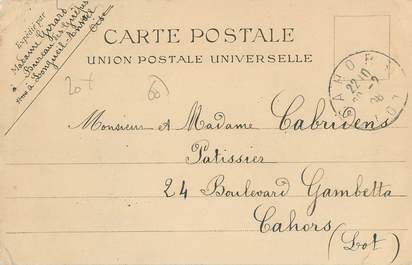 Expédié par
Madame Girard
Bureau des
à Longueil-Annel
Oise
CARTE POSTALE
UNION POSTALE UNIVERSELLE
20
Monsieur et Madame Cabridens
Patissier
24 Boulevard Gambetta
Cahors
(Lot)
CAHORS
LOT